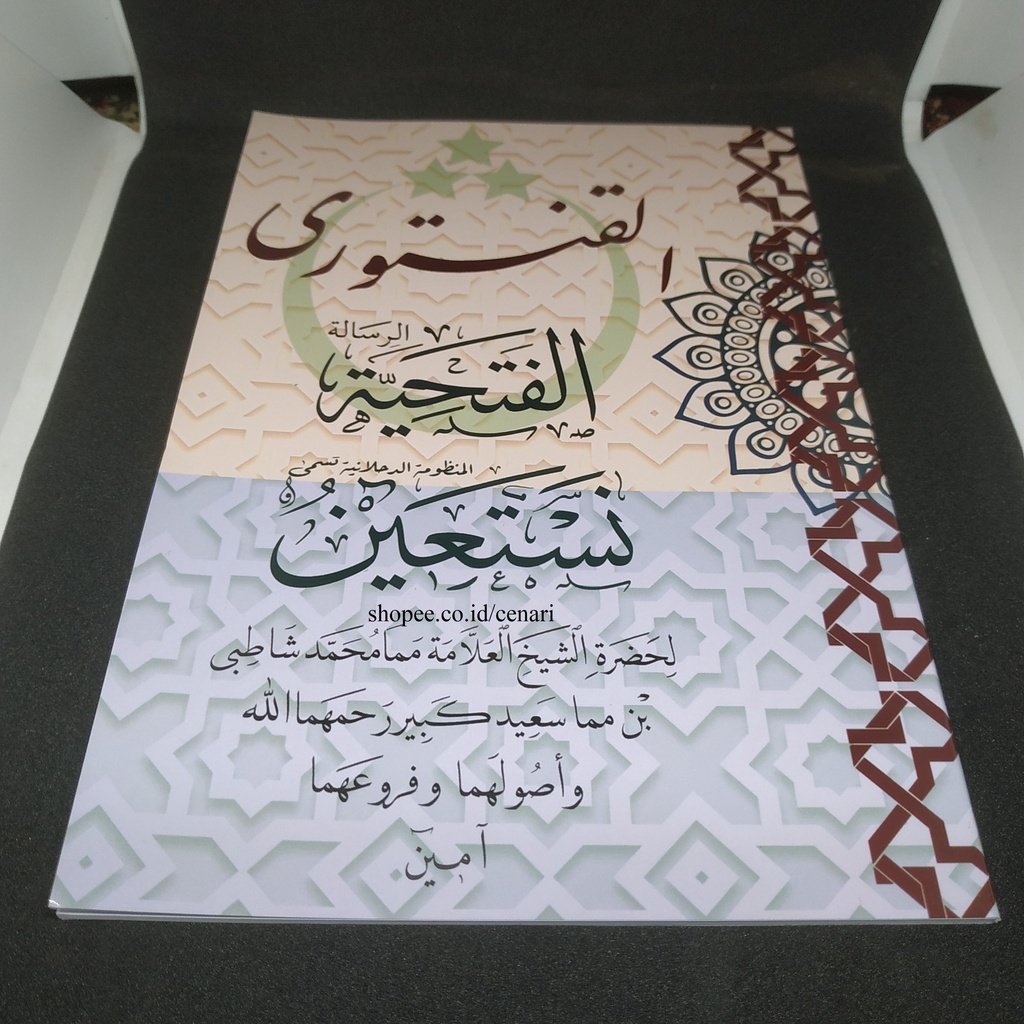 القنتورى
الرسالة
الفتحية
المنظومة الدحلانية تسمى
نَسْتَعِيْنُ
shopee.co.id/cenari
لِحَضَرَةِ الشيخ العلَّامَة مَمامُحَمَّد شَاطِبى
بْن مما سَعِيد كَبِير رَحمهما الله
وأصُولَهما وفروعَهما
آمين